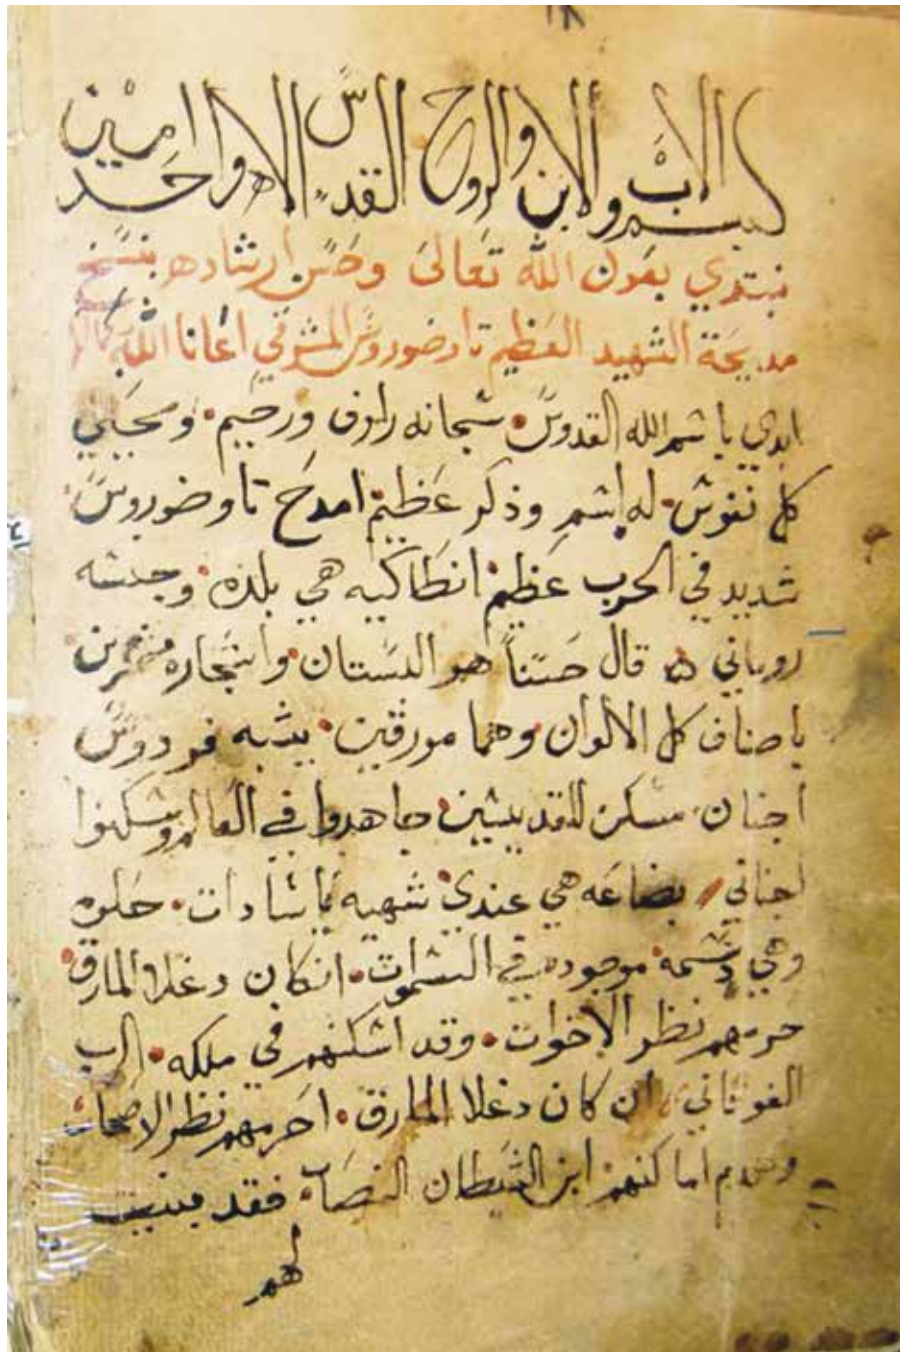 بسم الاب والابن والروح القدس الاله الواحد امين
نبتدي بعون الله تعالى وحسن ارشاده بنسخ
مديحة الشهيد العظيم تادرضوروس المشرقي اعاننا الله
ابدي باسم الله القدوس • سبحانه راوف ورحيم • ومحيي
كل نفوس • له اسم وذكر عظيم • امدح تاوضوروس
شديد في الحرب عظيم • انطاكيه هي بلده • وجنسه
روماني قال حسناً هو البستان • واشجاره مثمرين
باصناف كل الالوان وهما مورقين • يشبه فردوس
اجنان • مسكن للقديسين • جاهدوا في العالم وسكنوا
اجناني بضاعه هي عندي شهيه يا سادات • حلوه
وهي دسمه • موجوده في السموات • انكان دغلا المارق
حرمهم نظر الاخوات • وقد اسكنهم في ملكه • الرب
الفوقاني ان كان دغلا المارق • احرمهم نظر الاصحاب
وهدم اماكنهم ابن الشيطان النصاب • فقد بنيت
لهم